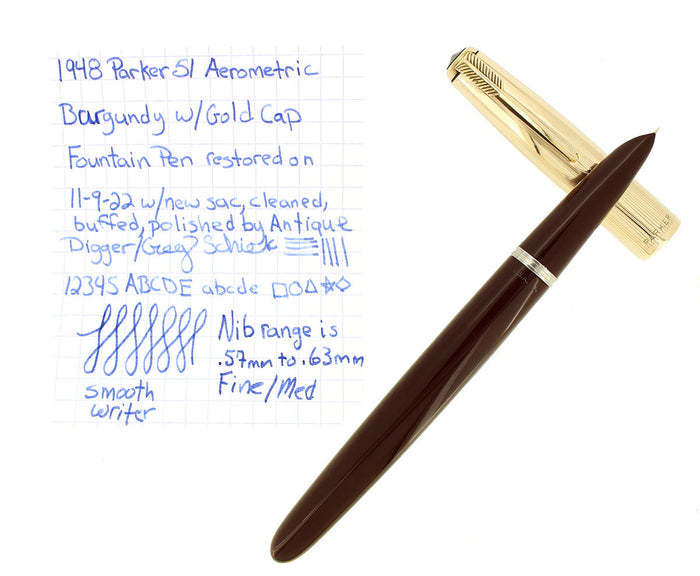 1948 Parker 51 Aerometric
Burgundy w/Gold Cap
Fountain Pen restored on
11-9-22 w/new sac, cleaned,
buffed, polished by Antique
Digger/Greg
12345 ABCDE abcde
Nib range is
.57mm to .63mm
Fine/Med
smooth
writer
PARKER